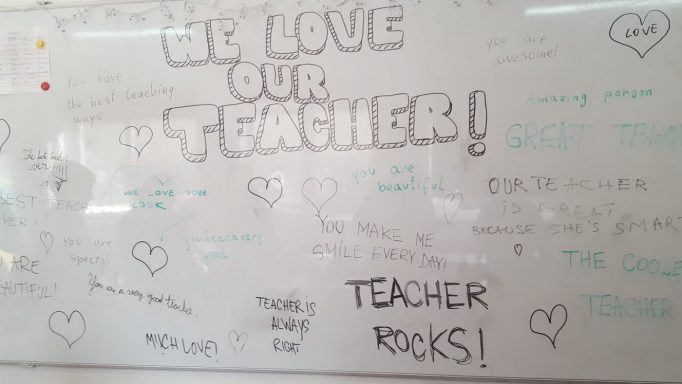 WE LOVE
OUR
TEACHER!
You have
the best teaching
ways
you are
awesome!
LOVE
Amazing person
GREAT TEAC
The best teacher
ever!!!!!
BEST TEACHE
VER!
WE LOVE YOUR
LOOK
you are
beautiful
OUR TEACHER
IS GREAT
BECAUSE SHE'S SMART
YOU MAKE ME
SMILE EVERY DAY!
You are
special!
good
THE COOLE
TEACHER
ARE
BEAUTIFUL!
You are a very good teacher.
MUCH LOVE!
TEACHER IS
ALWAYS
RIGHT
TEACHER
ROCKS!